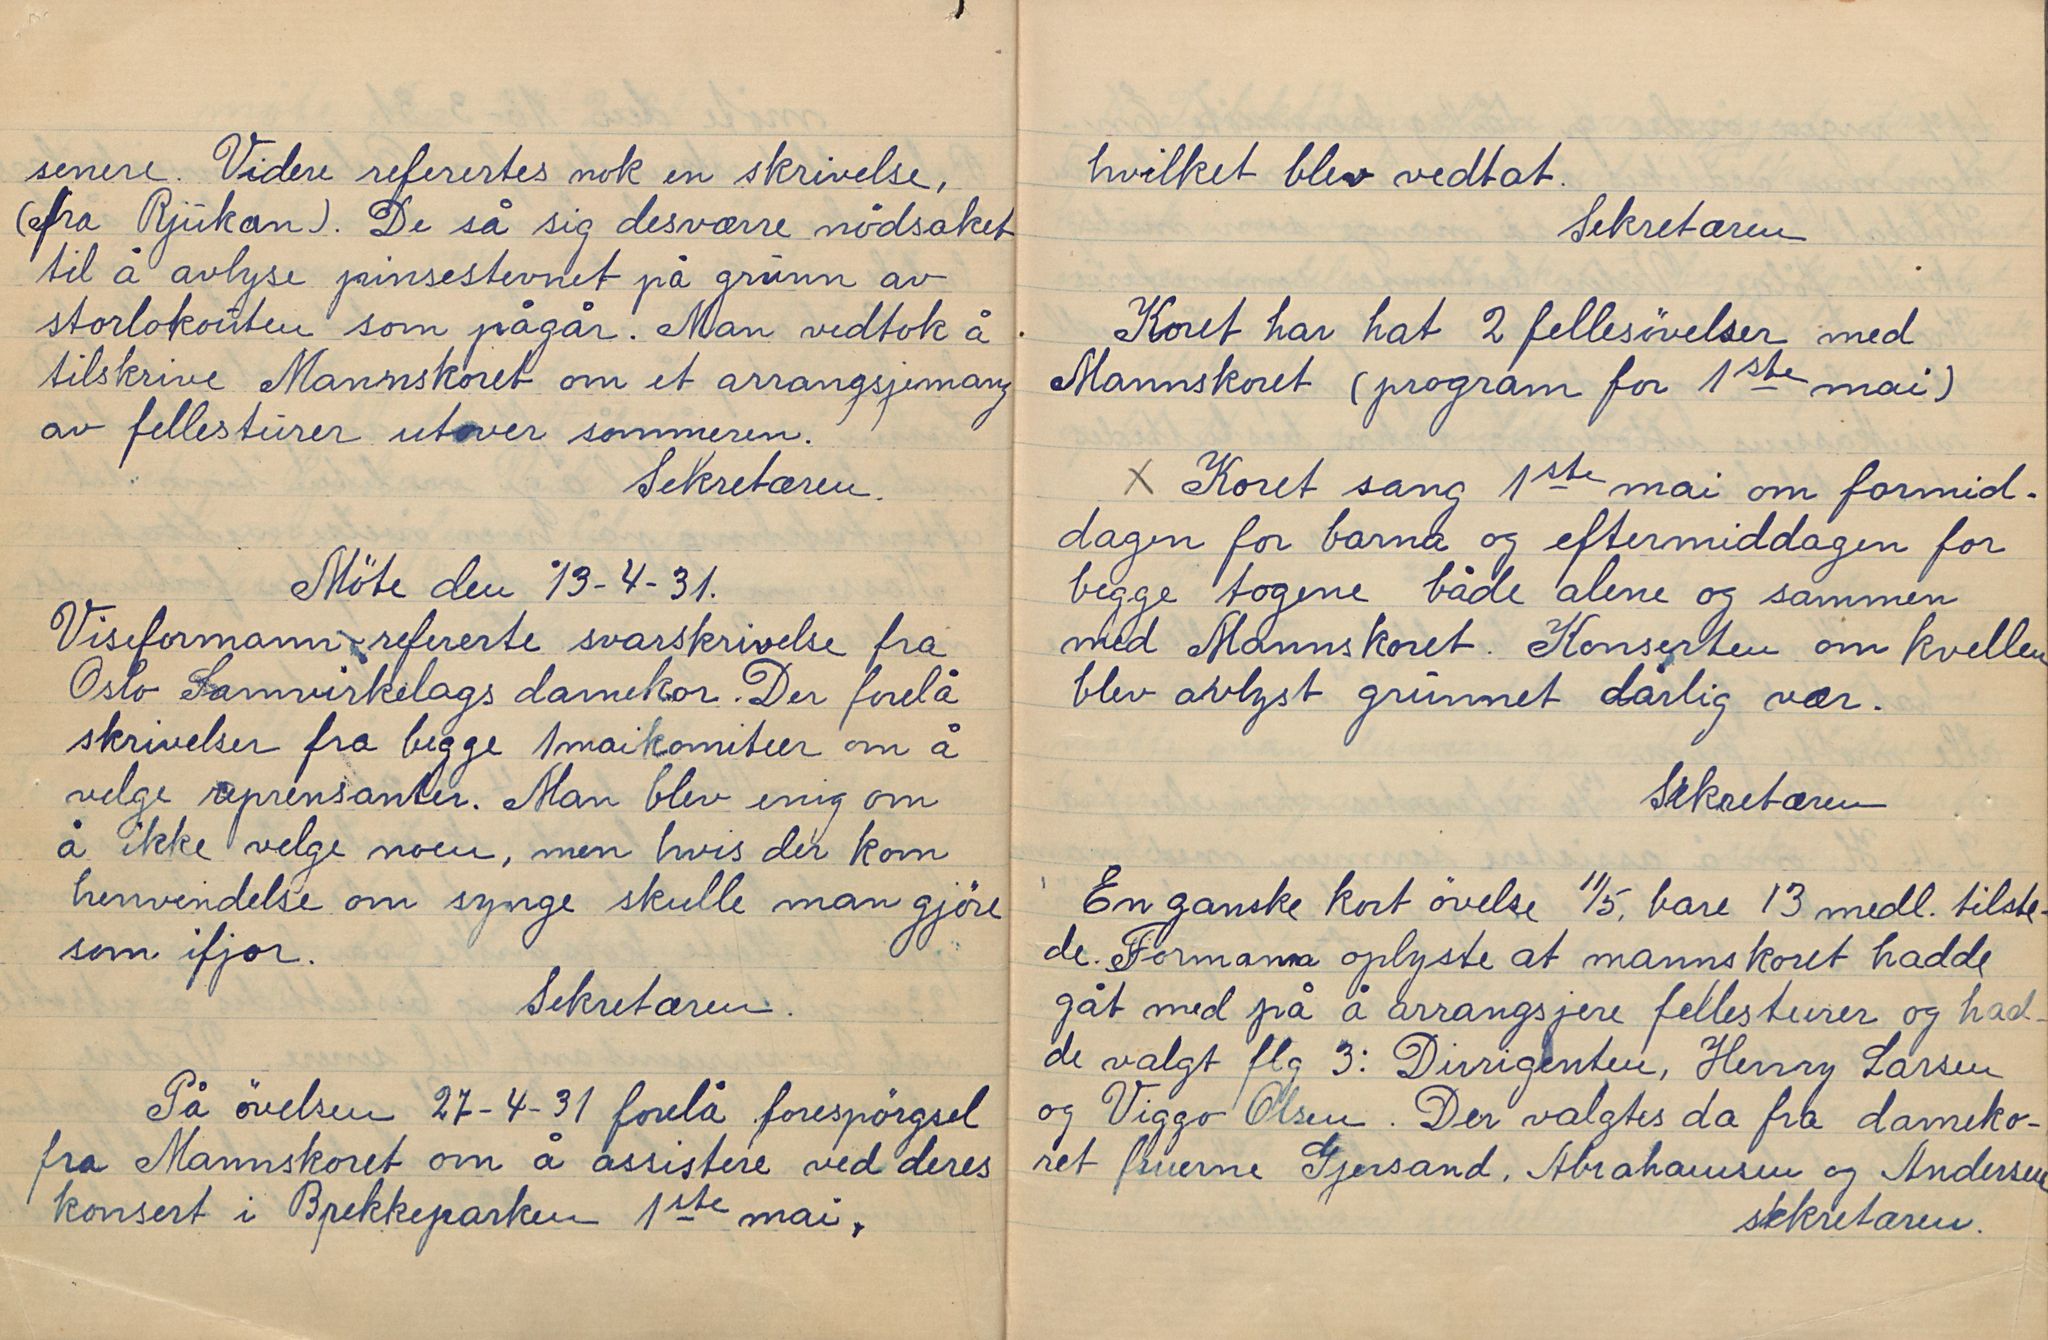 senere. Videre referertes nok en skrivelse,
(fra Rjukan). De så sig desværre nödsaket
til å avlyse pinsestevnet på grunn av
storlokouten som pågår. Man vedtok å
tilskrive Mannskoret om et arrangsjemang
av fellesturer utover sommeren.
Sekretæren.
Möte den 13-4-31.
Viseformann refererte svarskrivelse fra
Oslo Samvirkelags damekor. Der forelå
skrivelser fra begge 1maikomiteer om å
velge reprensanter. Man blev enig om
å ikke velge noen, men hvis der kom
henvendelse om synge skulle man gjöre
som ifjor.
Sekretæren.
På övelsen 27-4-31 forelå forespörgsel
fra Mannskoret om å assistere ved deres
konsert i Brekkeparken 1ste mai,
hvilket blev vedtat.
Sekretæren
Koret har hat 2 fellesövelser med
Mannskoret (program for 1ste mai)
X Koret sang 1ste mai om formid-
dagen for barna og eftermiddagen for
begge togene både alene og sammen
med Mannskoret. Konserten om kvellen
blev avlyst grunnet dårlig vær.
Sekretæren
En ganske kort övelse 11/5, bare 13 medl. tilste-
de. Formann oplyste at mannskoret hadde
gåt med på å arrangsjere fellesturer og had-
de valgt flg 3: Dirrigenten, Henry Larsen
og Viggo Olsen. Der valgtes da fra dameko-
ret fruerne Gjersand, Abrahamsen og Andersen
sekretæren.